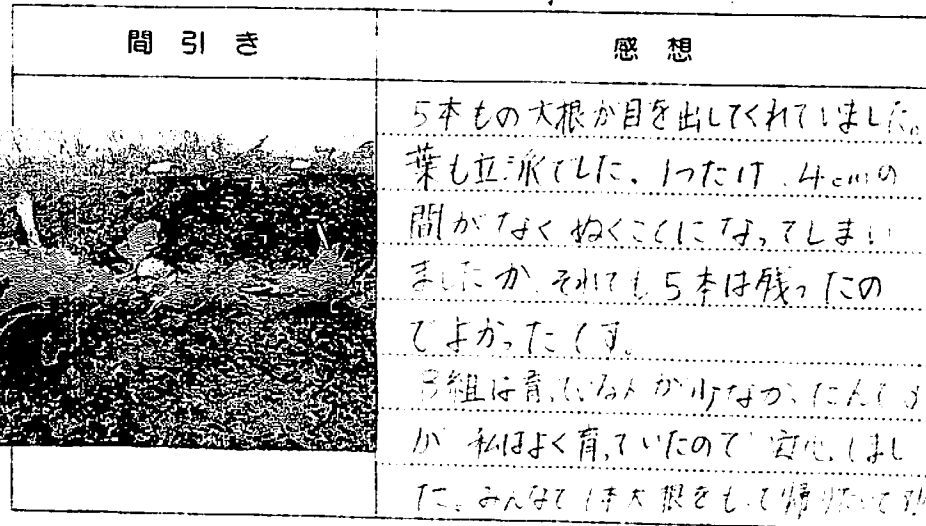 間引き
感想
5本もの大根が目を出してくれていました。
葉も立派でした。1つだけ、4cmの
間がなくぬくことになってしまい
ましたが、それでも5本は残ったの
でよかったです。
3組は育っている人が少なかったんです
が 私はよく育っていたので 安心しまし
た。みんなで1本大根をもって帰りたいです